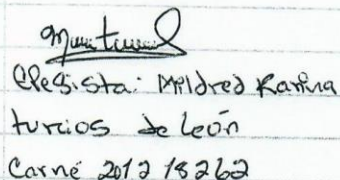 Elegista: Mildred Karina
turcios de león
Carné 201218262